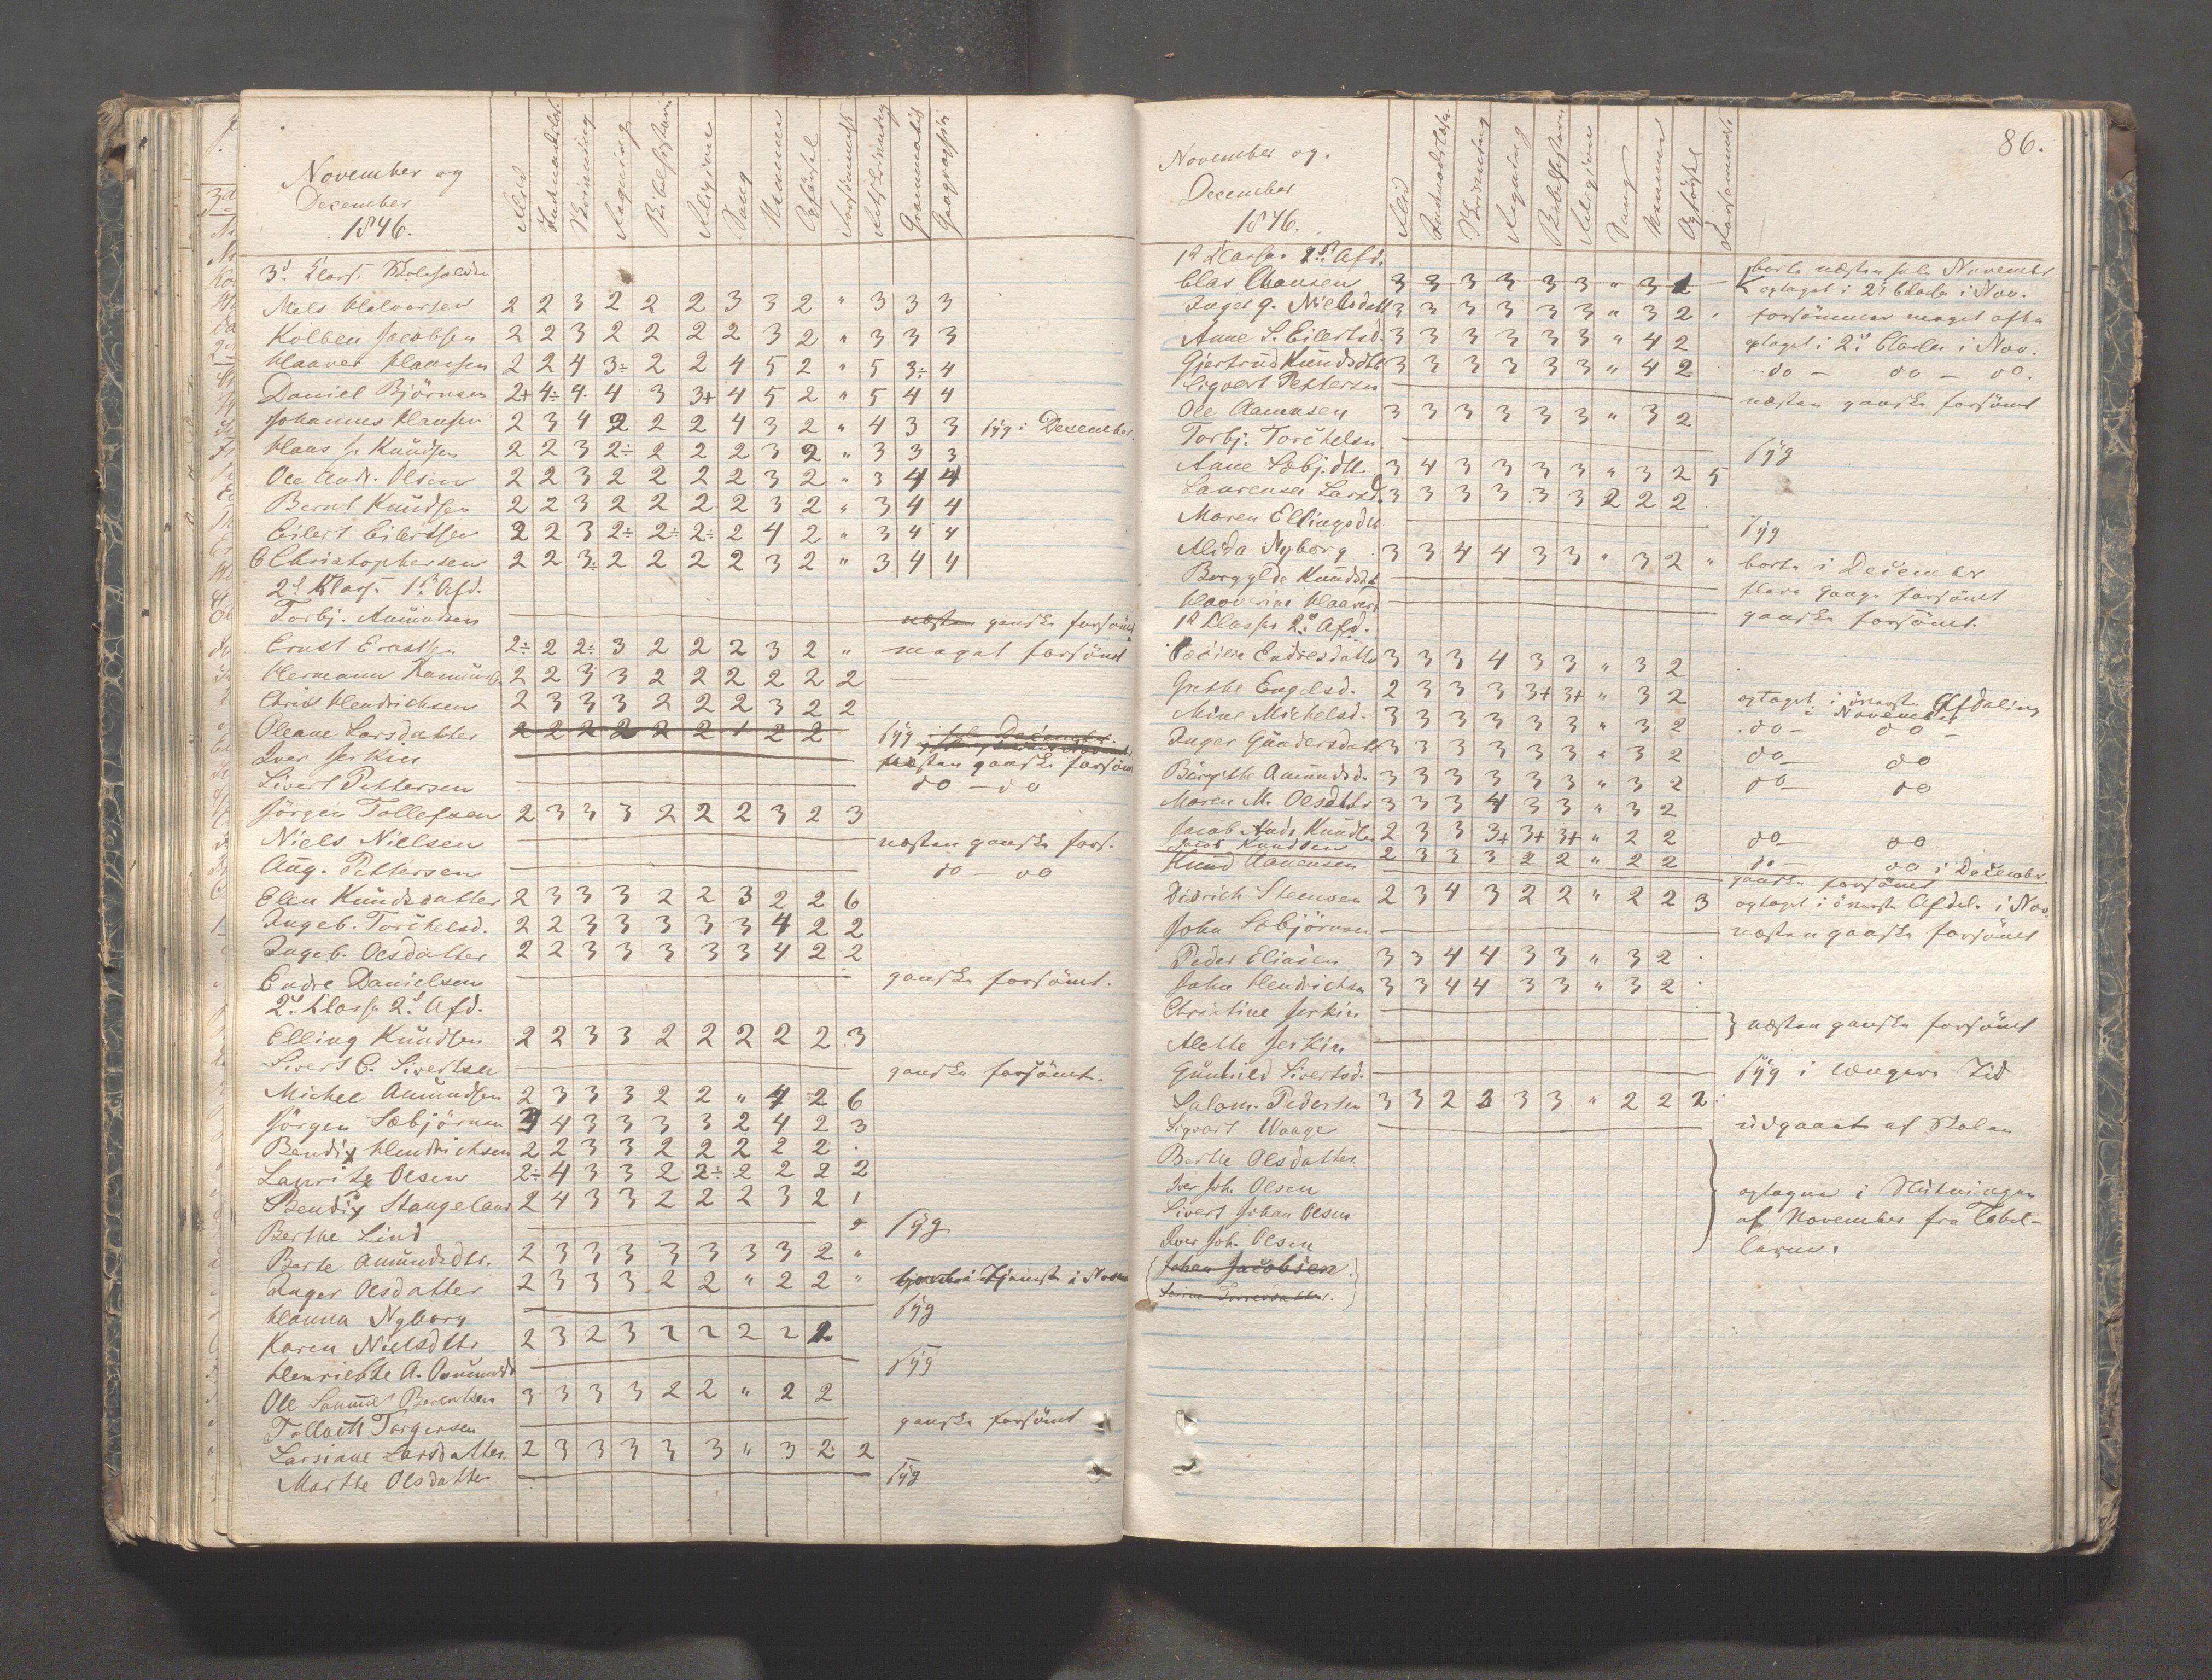 November og
December
1846.
Flid
Indenadslæs.
Skrivning
Regning
Bibelhistorie
Religion
Sang
Udenad
Opførsel
Forsømmelse
Retskrivning
Grammatik
Geographie
3d. Klasse
Niels Halvorsen 2 2 3 2 2 2 3 3 2 " 3 3 3
Kolben Jacobsen 2 2 3 2 2 2 2 3 2 " 3 3 3
Haaver Haaversen 2 2 4 3÷ 2 2 4 5 2 " 5 3÷ 4
Daniel Björnsen 2+ 4÷ 4 4 3 3+ 4 5 2 " 5 4 4
Johannes Hansen 2 3 4 2 2 2 4 3 2 " 4 3 3 syg i December.
Hans Knudsen 2 2 3 2÷ 2 2 2 3 2 " 3 3 3
Ole Andr. Olsen 2 2 3 2 2 2 2 3 2 " 3 4 4
Bernt Knudsen 2 2 3 2 2 2 2 3 2 " 3 4 4
Eilert Eilertsen 2 2 3 2÷ 2÷ 2÷ 2 4 2 " 3 4 4
Christophersen 2 2 3÷ 2 2 2 2 3 2 " 3 4 4
2d Klasse 1ste Afd.
Torbj. Amundsen næsten ganske forsömt
Ernst Ernstsen 2÷ 2 2÷ 3 2 2 2 3 2 " meget forsömt
Hermann 2 2 3 3 2 2 2 2 2 2
Christ Hendrichsen 2 3 3 3 2 2 2 3 2 2
Oleane Larsdatter 2 2 2 2 2 2 1 2 2 syg i hele December.
Iver Jerkin næsten ganske forsömt
Sivert Pettersen do – do
Jörgen Tollefsen 2 3 3 3 2 2 2 3 2 3
Niels Nielsen næsten ganske fors.
Aug. Pettersen do – do
Elen Knudsdatter 2 3 3 3 2 2 3 2 2 6
Ingeb. Torkelsd. 2 2 3 3 3 3 3 4 2 2
Ingeb. Olsdatter 2 2 3 3 3 3 3 4 2 2
Endre Danielsen ganske forsömt.
2d. Classe 2d. Afd.
Elling Knudsen 2 2 3 3 2 2 2 2 2 3
Sivert E. Sivertsen ganske forsömt.
Michel Amundsen 2 3 3 3 2 2 " 4 2 6
Jörgen Sæbjörnsen 3 4 3 3 3 3 2 4 2 3
Bendix Hendrichsen 2 2 3 3 2 2 2 2 2 .
Lauritz Olsen 2÷ 4 3 3 2 2÷ 2 2 2 2
Bendix Stangeland 2 4 3 3 2 2 2 3 2 1
Berthe Lind syg
Berte Amundsdtr. 2 3 3 3 3 3 3 3 2 "
Inger Olsdatter 2 3 3 3 2 2 " 2 2 " Tjeneste i Novem
Hanna Nyborg syg
Karen Nielsdtr 2 3 2 3 2 2 2 2 2
Henriette A. Amundsd syg
Ole Samuel Berentsen 3 3 3 3 2 2 " 2 2
Tollack Torgersen ganske forsömt
Larsiane Larsdatter. 2 3 3 3 3 3 " 3 2 2
Marthe Olsdatter syg
86.
November og.
December
1846.
Flid
Indenadslæsn
Skrivning
Regning
Bibelhistorie
Religion
Sang
Udenad
Opförsel
Forsömmels.
1ste Classe 1ste Afd.
Clas Clausen 3 3 3 3 3 3 " 3 1 – borte næsten hele November
optaget i 2d Classe i Nov.
Inger G. Nielsdatt 3 3 3 3 3 3 " 3 2 . forsömmer meget ofte
Anne S. Eilertsd. 3 3 3 3 3 3 " 4 2 optaget i 2d. Classe i Nov.
Gjertrud Knudsdtr 3 3 3 3 3 3 " 4 2 do – do – do.
Sigvert Pettersen næsten ganske forsömt
Ole Aanensen 3 3 3 3 3 3 " 3 2
Torbj. Torkelsen syg
Anne Sæbj.dtt 3 4 3 3 3 3 " 3 2 5
Laurense Larsd. 3 3 3 3 3 3 2 2 2
Maren Ellingsdtr. syg
Alida Nyborg 3 3 4 4 3 3 " 3 2 " borte i December
Borgylde Knudsd flere Gange forsömt
Haaverine Haavers ganske forsömt.
1ste Classe 2d. Afd.
Cecilie Endresdatter 3 3 3 4 3 3 " 3 2 .
Grethe Engelsd. 2 3 3 3 3+ 3+ " 3 2 optaget i överste Afdeling
i November
Mine Michelsd. 3 3 3 3 3 3 " 3 2 do – do –
Inger Gundersdatt 3 3 3 3 3 3 " 3 2 do – do
Börgithe Amundsd. 3 3 3 3 3 3 " 3 2 do – do
Maren M. Olsdttr 3 3 3 4 3 3 " 3 2
Jacob Ands Knudsn 2 3 3 3+ 3+ 3+ " 2 2 do – do
Jacob Knudsen 2 3 3 3 2 2 " 2 2 do – do i December
Knud Aanensen ganske forsömt
Didrich Steensen 2 3 4 3 2 2 " 2 2 3 optaget i överste Afdel. i Nov.
John Sæbjörnsen næsten ganske forsömt
Peder Eliasen 3 3 4 4 3 3 " 3 2 .
John Hendrichsen 3 3 4 4 3 3 " 3 2 .
Christine Jerkin
} næsten ganske forsömt
Alette Jerkin
Gunhild Sivertsd. syg i længere Tid
Salom. Pedersen 3 3 2 3 3 3 " 2 2 2
Sigvart Waage udgaaet af Skolen
Berthe Olsdatter
Iver Joh. Olsen optagne i Slutningen
Sivert Johan Olsen af November fra Tabel-
Iver Joh. Olsen lærene.
(Johan Jacobsen.)